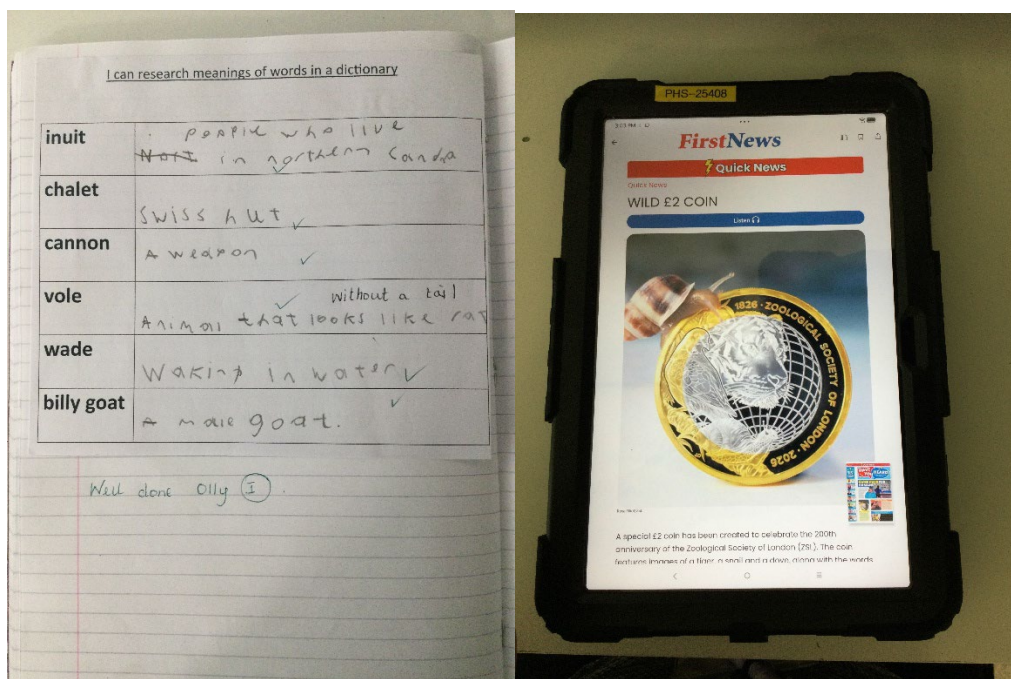 I can research meanings of words in a dictionary
inuit
people who live
Nort in northern Canda
chalet
Swiss hut
cannon
A weapon
vole
without a tail
Animal that looks like rat
wade
Waking in water
billy goat
A male goat.
Well done Olly I.
PHS-25408
FirstNews
Quick News
Quick News
WILD £2 COIN
Listen
1826 · ZOOLOGICAL SOCIETY OF LONDON · 2026
A special £2 coin has been created to celebrate the 200th
anniversary of the Zoological Society of London (ZSL). The coin
features images of a tiger, a snail and a dove, along with the words